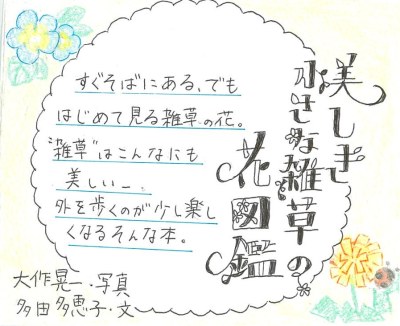 美しき
小さな雑草の
花図鑑
すぐそばにある、でも
はじめて見る雑草の花。
"雑草"はこんなにも
美しいー。
外を歩くのが少し楽し
くなるそんな本。
大作晃一・写真
多田多恵子・文